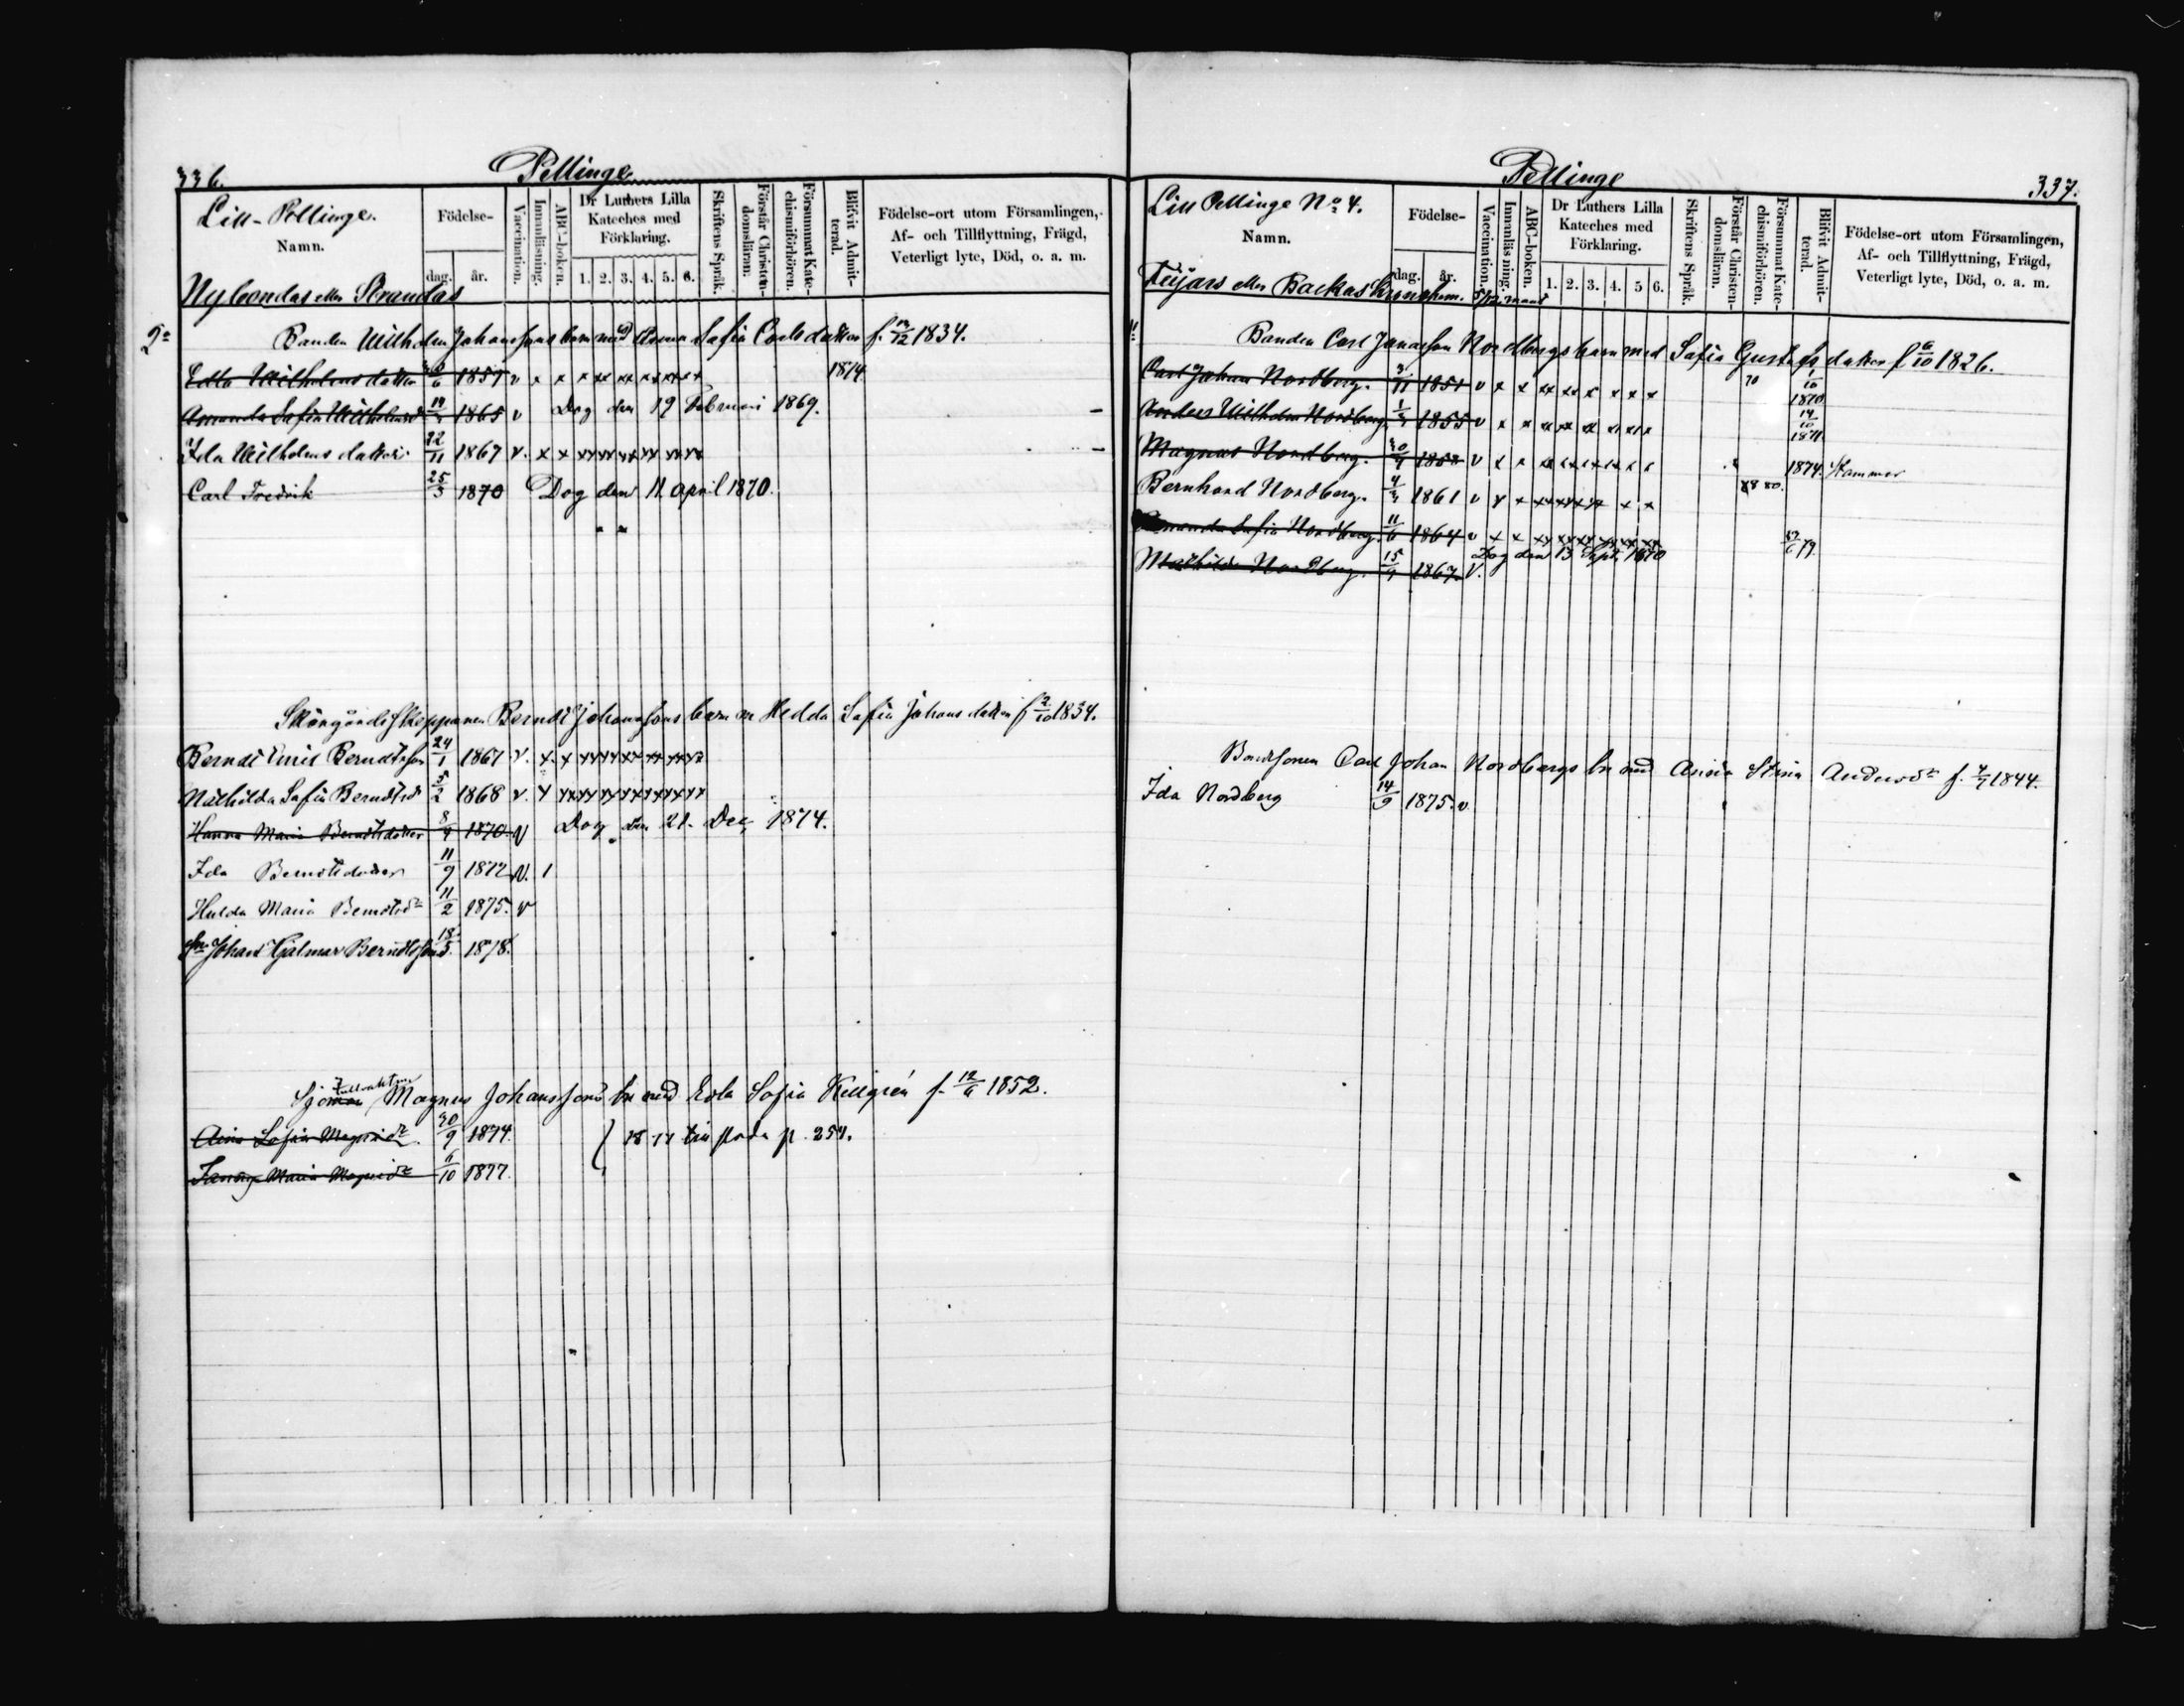 336.
Pellinge
Lill-Pellinge.
Namn.
Födelse-
dag.
år.
Vaccination.
Innanläsning.
ABC-boken.
Dr Luthers Lilla Kateches med Förklaring.
1. 2. 3. 4. 5. 6.
Skriftens Språk.
Förstår Christendomsläran.
Försummat Katechismiförhören.
Blifvit Admitterad.
Födelse-ort utom Församlingen, Af- och Tillflyttning, Frägd, Veterligt lyte, Död, o. a. m.
Nybondas eller Strandas
Bonden Wilhelm Johanssons barn med Anna Sofia Carlsdotter f. 1834.
Wilhelmsdotter 1857 v x x x xx xx xxxxxx 1874
Amanda Sofia Wilhelmsd 1865 v Dog den 19 Februari 1869.
Ida Wilhelms dotter 22/11 1867 v. x x xx xx xx xx xx xx
Carl Fredrik 25/3 1870 Dog den 11 April 1870.
Skärgårdsskepparen Berndt Johanssons barn m Hedda Sofia Johansdotter f 2/10 1834.
Berndt Emil Berndtsson 24/1 1867 v. x. x xx xx xx xx xx xx
Mathilda Sofia Berndtsd 5/2 1868 v. x xx xx xx xx xx xx xx
Hanna Maria Berndtsdotter 8/4 1870 v Dog den 21. Dec, 1874.
Ida Berndtsdotter 11/9 1872 v. 1
Hulda Maria Berndtsdr 11/2 1875. v
Johan Hjalmar Berndtsson 18/5. 1878.
Sjöman Magnus Johanssons bn med Edla Sofia Killgrén f. 12/6 1852.
Sofia Magnidr 30/9 1874. } 1877 till p. 257.
Fanny Maria Magnidr 6/10 1877.
Pellinge
337.
Lill Pellinge No 4.
Namn.
Födelse-
dag.
år.
Vaccination.
Innanläsning.
ABC-boken.
Dr Luthers Lilla Kateches med Förklaring.
1. 2. 3. 4. 5 6.
Skriftens Språk.
Förstår Christendomsläran.
Försummat Katechismiförhören.
Blifvit Admitterad.
Födelse-ort utom Församlingen, Af- och Tillflyttning, Frägd, Veterligt lyte, Död, o. a. m.
eller Backas 5/12 mant
Bonden Carl Nordbergs barn med Sofia Gustafsdotter f 6/10 1826.
Carl Johan Nordberg. 1851 v x x xx xx x x x x 70 1870
Anders Wilhelm Nordberg 1855 v x x xx xx x x x 14/10 1871
Magnus Nordberg. 1858 v x x xx xx xx x x 1874. Stammar
Bernhard Nordberg. 4/3 1861 v x x xx xx xx x x 80.
Sofia Nordberg 11/6 1864 v x x xx xx xx xx xx xx 79.
Mathilda Nordberg. 15/9 1867. v. Dog den 13 Sept. 1870
Bondsonen Carl Johan Nordbergs bn med Anna Stina Andersdr f. 1844.
Ida Nordberg 14/9 1875. v